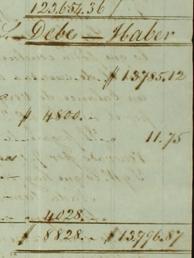 122,654.36
Debe — Haber
$ 13785.12
$ 4800. "
11.75
4028. "
$ 8828. " $ 13796.87